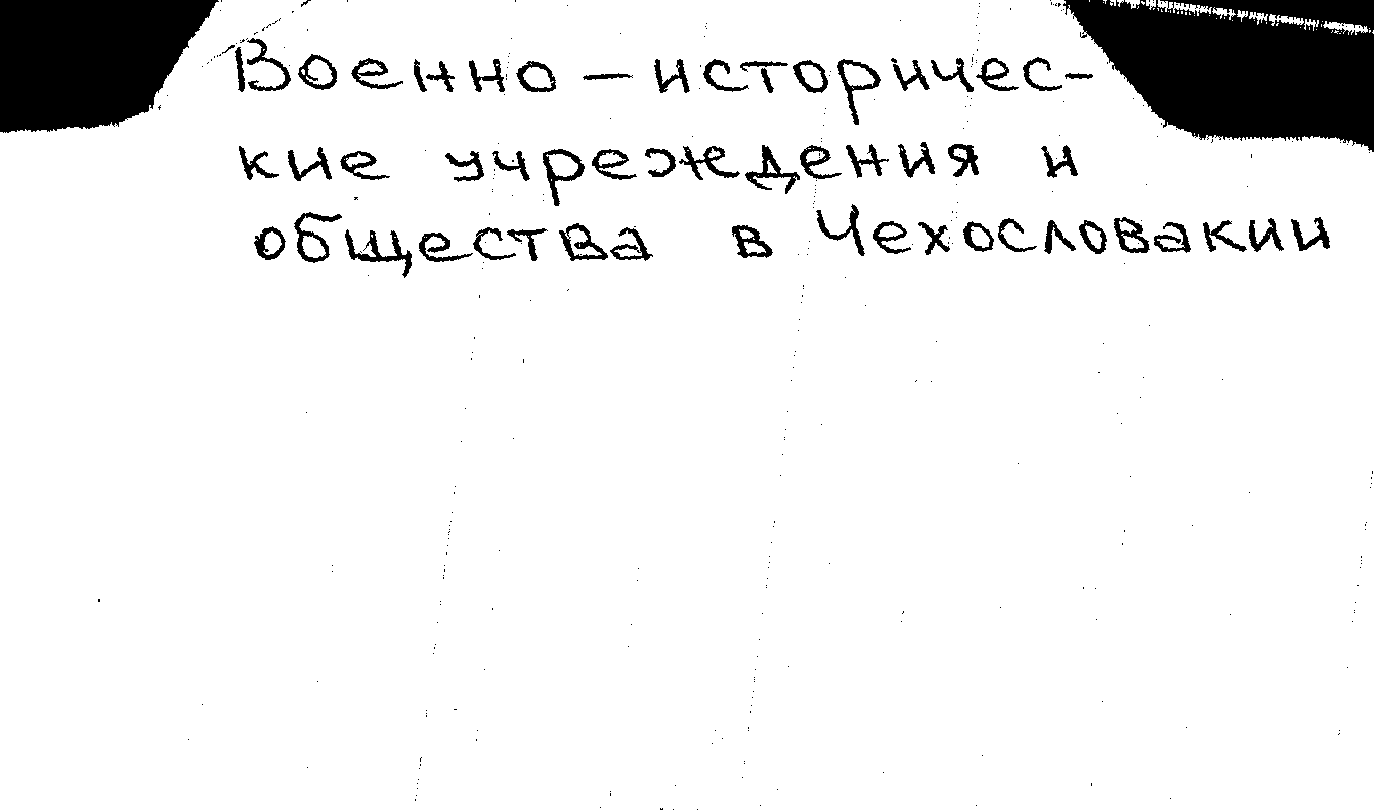 Военно-историчес-
кие учреждения и
общества в Чехословакии